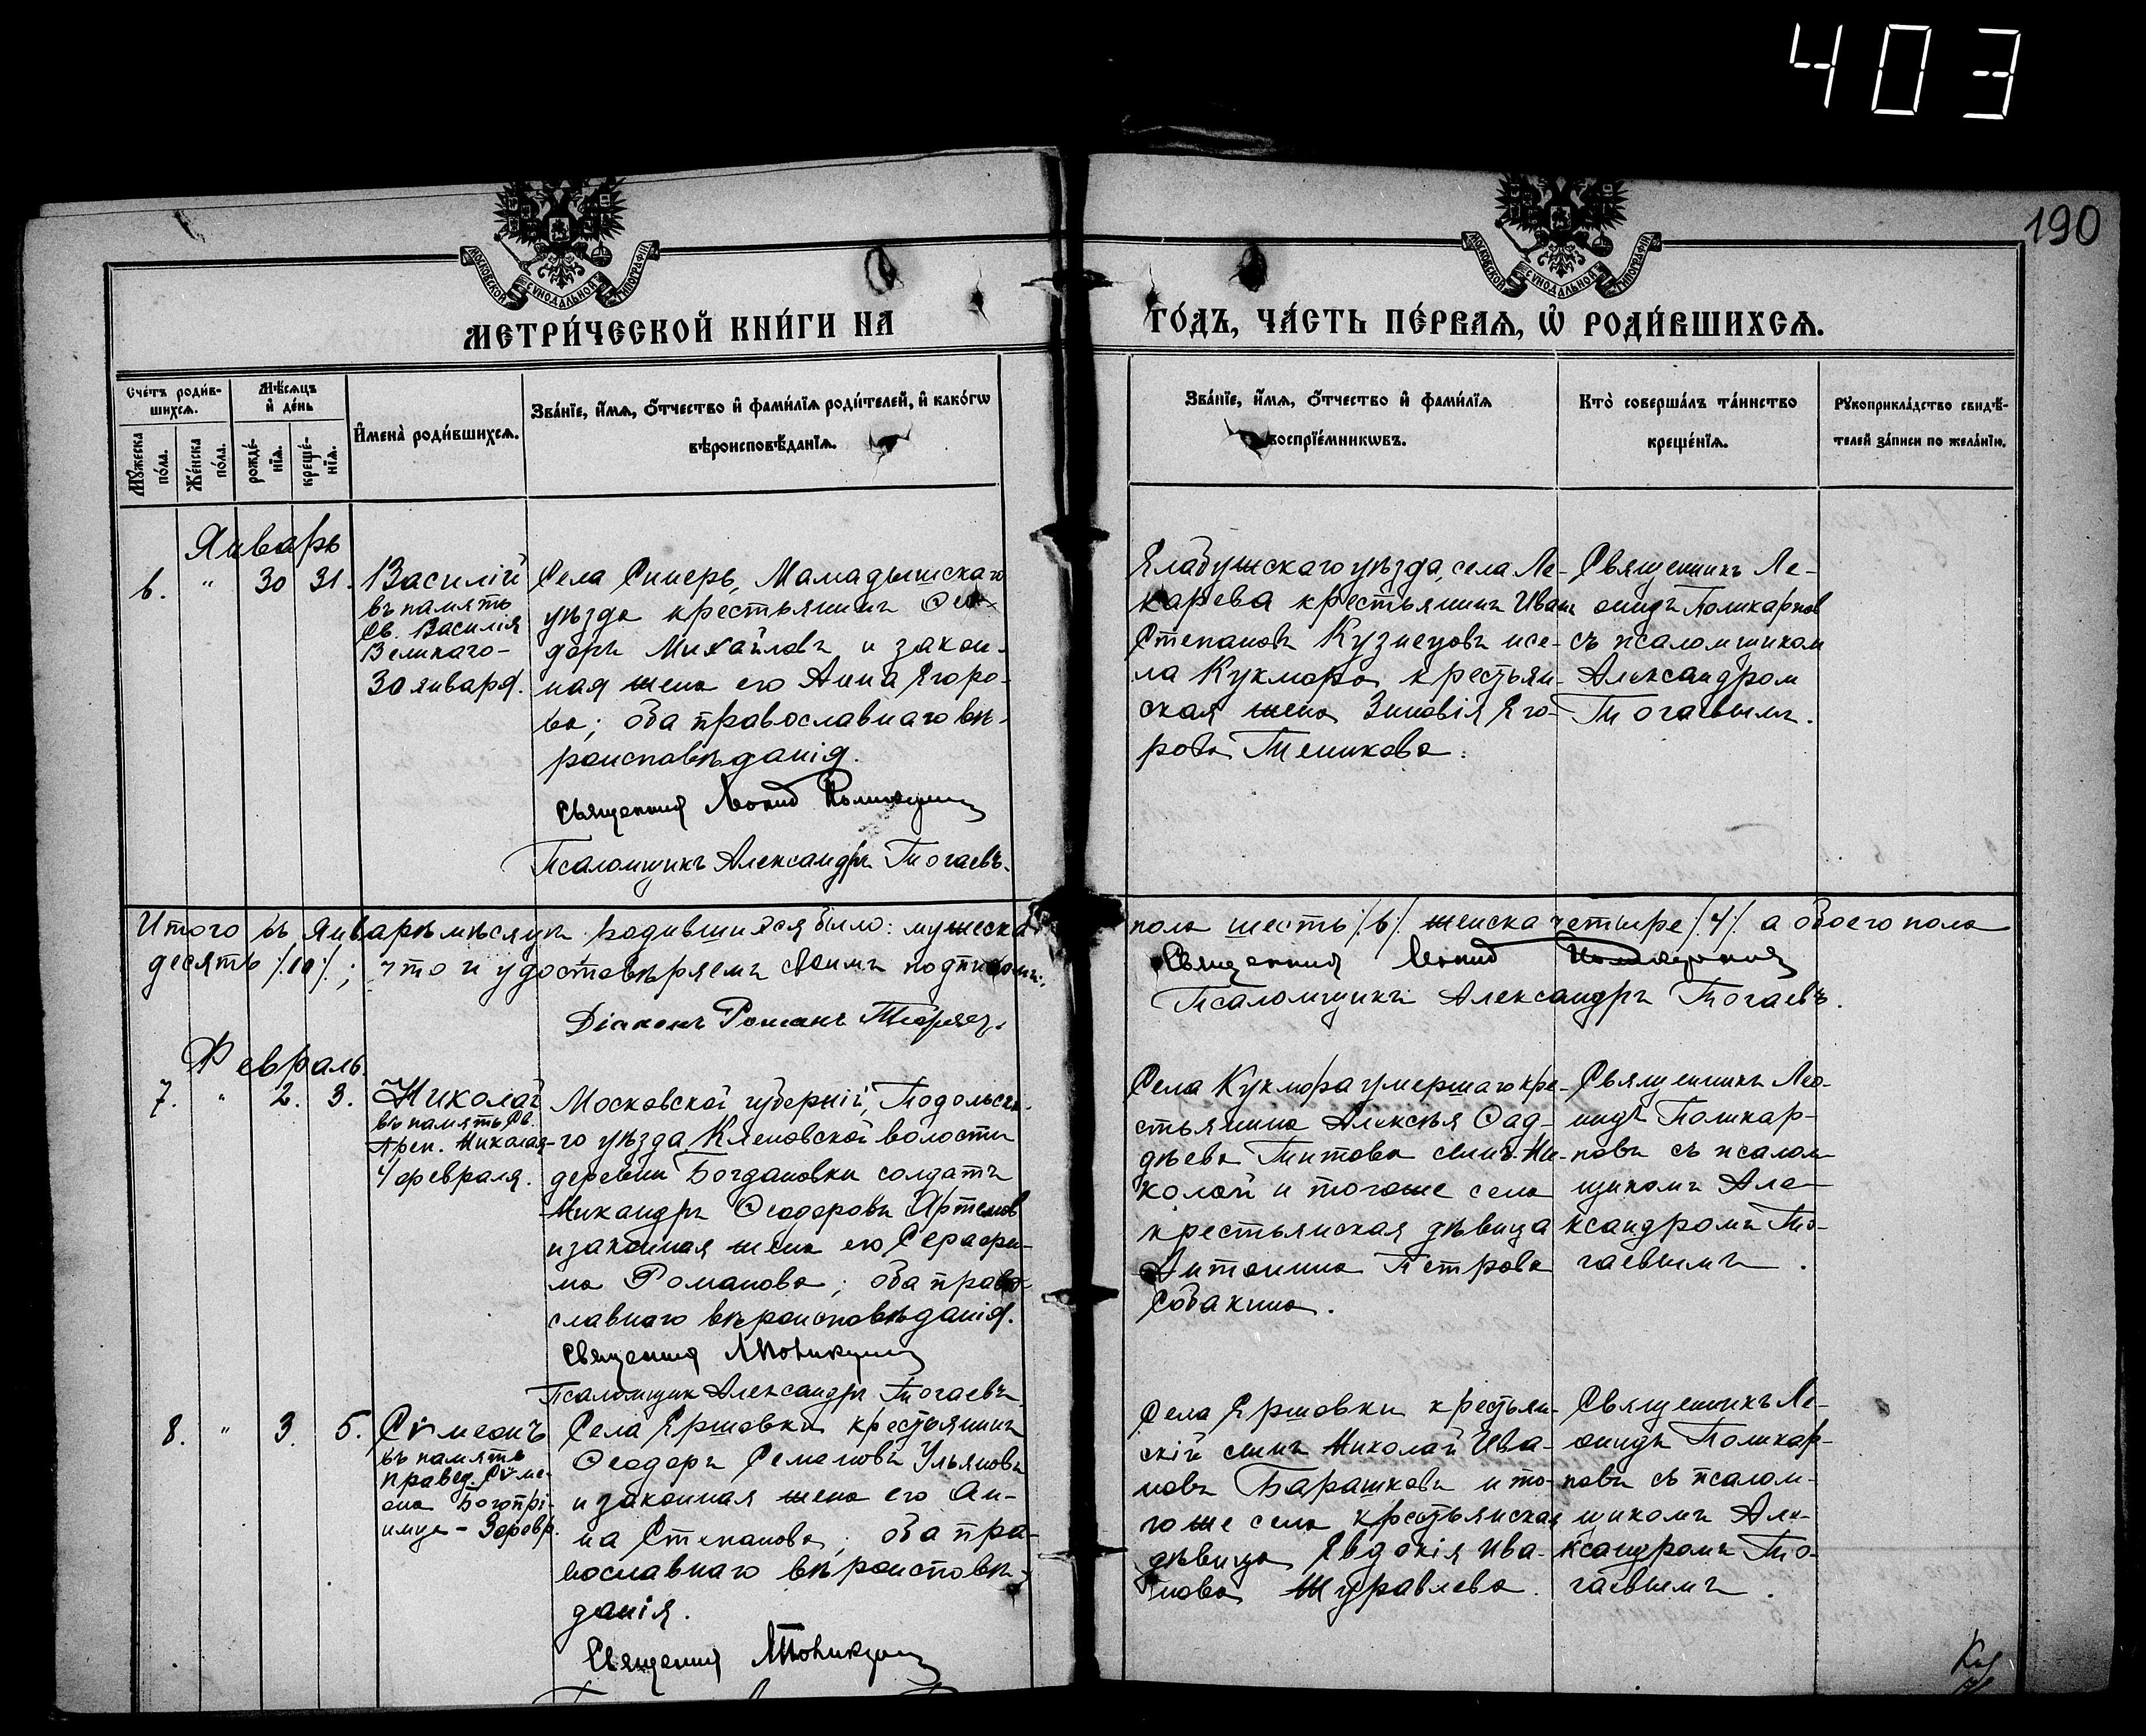 403
190
МОСКОВСКОЙ СѴНОДАЛЬНОЙ ТИПОГРАФІИ
МОСКОВСКОЙ СѴНОДАЛЬНОЙ ТИПОГРАФІИ
МЕТРИ́ЧЕСКОЙ КНИ́ГИ НА
ГО́ДЪ, ЧА́СТЬ ПЕ́РВАѦ, Ѡ҆ РОДИ́ВШИХСѦ.
Сче́тъ роди́в-
шихсѧ.
Мꙋжеска по́ла.
Же́нска по́ла.
Мѣ́сѧцъ
и҆ де́нь
рожде́-
нїѧ.
креще́-
нїѧ.
И҆мена̀ роди́вшихсѧ.
Зва́нїе, и҆́мѧ, ѻ҆́тчество и҆ фами́лїѧ роди́телей, и҆ како́гѡ
вѣроисповѣ́данїѧ.
Зва́нїе, и҆́мѧ, ѻ҆́тчество и҆ фами́лїѧ
воспрїе́мникѡвъ.
Кто̀ соверша́лъ та́инство
креще́нїѧ.
Рꙋкоприкла́дство свидѣ́-
телей за́писи по жела́нїю.
Январь
6. " 30 31.
Василій
въ память
Св. Василія
Великаго-
30 января.
Села Синерь, Мамадышскаго
уѣзда крестьянинъ Ѳео-
доръ Михайловъ и закон-
ная жена его Анна Егоро-
ва; оба православнаго вѣ-
роисповѣданія.
Священник Леонид
Псаломщикъ Александръ Тогаевъ.
Елабужскаго уѣзда, села Ле-
карева крестьянинъ Иванъ
Степановъ Кузнецовъ и се-
ла Кукмора крестьян-
ская жена Зиновія Его-
рова Теникова.
Священникъ Ле-
онидъ Поликарпов
съ псаломщиком
Александром
Тогаевымъ.
Итого въ Январѣ мѣсяцѣ родившихся было: мужеска
пола шесть /6/ женска четыре /4/ а обоего пола
десять /10/; что и удостовѣряемъ своимъ подписомъ.
Священник Леонид
Псаломщикъ Александръ Тогаевъ.
Діаконъ Романъ
Февраль.
7. " 2. 3.
Николай
въ память Св.
Преп. Николая-
4 февраля.
Московской губерніи, Подольска-
го уѣзда Кленовской волости
деревни Богдановки солдатъ
Никандръ Ѳеодоровъ Артемов
и законная жена его Серафи-
ма Романова; оба право-
славнаго вѣроисповѣданія.
Священник
Псаломщик Александръ Тогаевъ
Села Кукмора умершаго кре-
стьянина Алексѣя Ѳад-
дѣева Титова сынъ Ни-
колай и тогоже села
крестьянская дѣвица
Антонина Петрова
Собакина.
Священникъ Лео-
нидъ Поликар-
повъ съ псалом-
щикомъ Але-
ксандромъ То-
гаевымъ.
8. " 3. 5.
Сѵмеонъ
въ память
правед. Сѵме-
она Богопрі-
имца - 3 февр.
Села Ершовки крестьянинъ
Ѳеодоръ Семеновъ Ульяновъ
и законная жена его Ан-
на Степанова; оба пра-
вославнаго вѣроисповѣ-
данія.
Священник
Села Ершовки крестьян-
скій сынъ Николай Ива-
новъ Барашковъ и то-
гоже села крестьянская
дѣвица Евдокія Ива-
нова Журавлева.
Священникъ Ле-
онидъ Поликар-
повъ съ псалом-
щикомъ Але-
ксандромъ То-
гаевымъ.